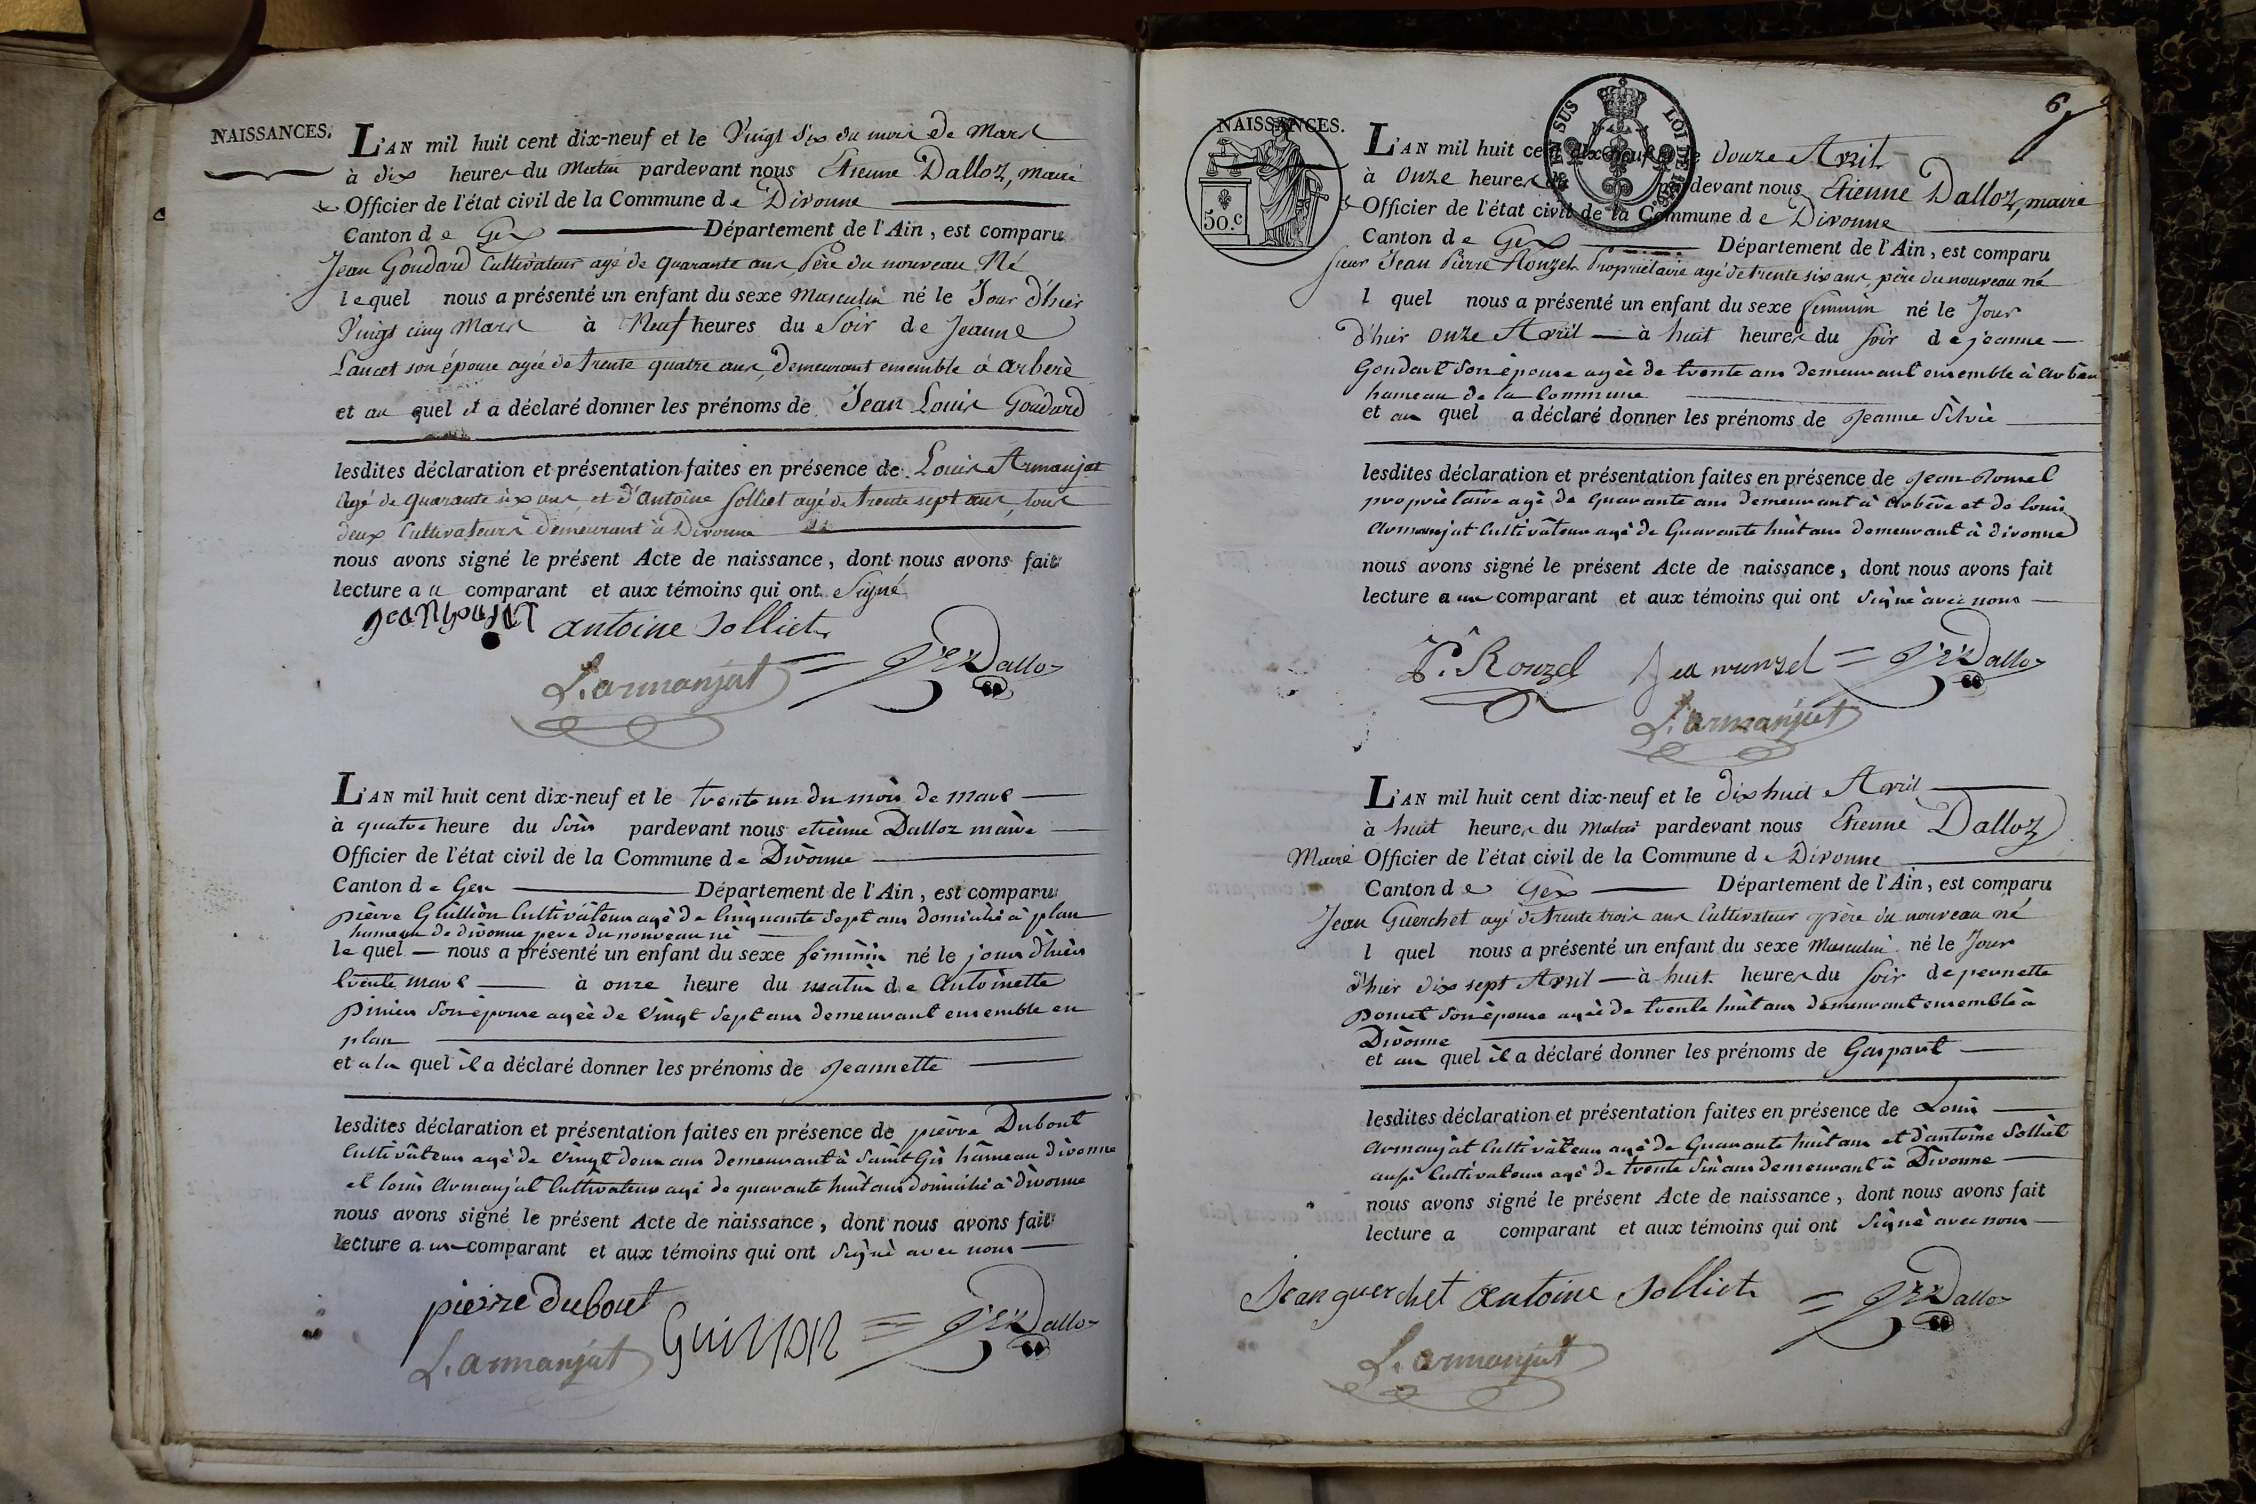 NAISSANCES.
L'AN mil huit cent dix-neuf et le Vingt Six du mois de Mars
à dix heures du Matin pardevant nous Etienne Dalloz, maire
Officier de l'état civil de la Commune de Divonne
Canton de Gex Département de l'Ain, est comparu
Jean Goudard Cultivateur agé de quarante ans Père du nouveau Né
lequel nous a présenté un enfant du sexe Masculin né le Jour d'hier
Vingt cinq Mars à Neuf heures du Soir de Jeanne
Lancet son épouse agée de trente quatre ans, Demeurant ensemble à arbère
et au quel il a déclaré donner les prénoms de Jean Louis Goudard
lesdites déclaration et présentation faites en présence de Louis Armanjat
agé de quarante six ans, et d'Antoine Solliet agé de trente sept ans, tous
deux Cultivateurs demeurant à Divonne
nous avons signé le présent Acte de naissance, dont nous avons fait
lecture au comparant et aux témoins qui ont Signé
antoine Solliet
Dalloz
L. armanjat
L'AN mil huit cent dix-neuf et le trente un du mois de mars
à quatre heure du Soir pardevant nous etiènne Dalloz maire
Officier de l'état civil de la Commune de Divonne
Canton de Gex Département de l'Ain, est comparu
pièrre Guillion Cultivâteur agé de Cinquante Sept ans domicilié à plan
hameau de divonne pere du nouveau né
le quel nous a présenté un enfant du sexe féminin né le jour d'hièr
trente mars à onze heure du matin de Antoinette
pinier Son épouse agéé de Vingt Sept ans demeurant ensemble en
plan
et a la quel il a déclaré donner les prénoms de Jeannette
lesdites déclaration et présentation faites en présence de pièrre Dubout
Cultivâteur agé de Vingt deux ans demeurant à Saint Gis hâmeau divonne
et louis Armanjat Cultivateur agé de quarante huit ans domicilié à divonne
nous avons signé le présent Acte de naissance, dont nous avons fait
lecture au comparant et aux témoins qui ont Signé avec nous
pierre Dubout
Guillion
Dalloz
L. armanjat
6
NAISSANCES.
50.c
EN SUS
LOI DE 1816
L'AN mil huit cent dix-neuf et le douze Avril
à Onze heures du pardevant nous Etienne Dalloz, maire
Officier de l'état civil de la Commune de Divonne
Canton de Gex Département de l'Ain, est comparu
sieur Jean Pierre Rouzel Propriétaire agé de trente six ans, père du nouveau né
l quel nous a présenté un enfant du sexe féminin né le Jour
d'hier onze Avril à huit heures du Soir de jeanne
Goudart Son épouse agéé de trente ans demeurant ensemble à Arbère
hameau de la Commune
et au quel a déclaré donner les prénoms de Jeanne Silvie
lesdites déclaration et présentation faites en présence de Jean Rouzel
propriétaire agé de quarante ans demeurant à Arbère et de louis
Armanjat Cultivâteur agé de Quarante huit ans demeurant à divonne
nous avons signé le présent Acte de naissance, dont nous avons fait
lecture au comparant et aux témoins qui ont Signé avec nous
P. Rouzel
Dalloz
L. armanjat
L'AN mil huit cent dix-neuf et le dix huit Avril
à huit heures du Matin pardevant nous Etienne Dalloz
Maire Officier de l'état civil de la Commune de Divonne
Canton de Gex Département de l'Ain, est comparu
Jean Guerchet agé de trente trois ans Cultivateur père du nouveau né
l quel nous a présenté un enfant du sexe Masculin né le Jour
d'hier dix sept Avril à huit heures du Soir de pernette
poncet Son épouse agéé de trente huit ans demeurant ensemble à
Divonne
et au quel il a déclaré donner les prénoms de Gaspard
lesdites déclaration et présentation faites en présence de Louis
Armanjat Cultivâteur agé de Quarante huit ans et d'antoine Solliet
aussi Cultivateur agé de trente Six ans demeurant à Divonne
nous avons signé le présent Acte de naissance, dont nous avons fait
lecture a comparant et aux témoins qui ont Signé avec nous
Jean guerchet
antoine Solliet
Dalloz
L. armanjat